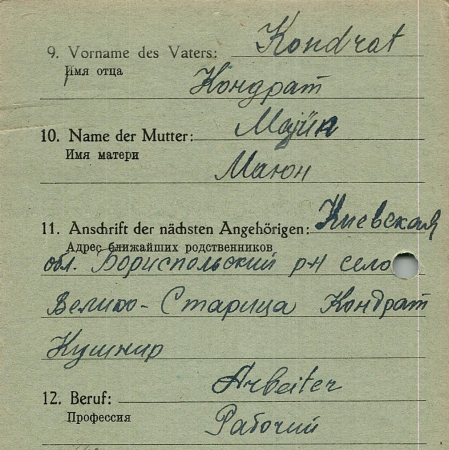 9. Vorname des Vaters: Kondrat
Имя отца
Кондрат
10. Name der Mutter: Majün
Имя матери
Маюн
11. Anschrift der nächsten Angehörigen: Киевская
Адрес ближайших родственников
обл. Бориспольский р-н село
Велико-Старица Кондрат
Кушнир
12. Beruf: Arbeiter
Профессия
Рабочий